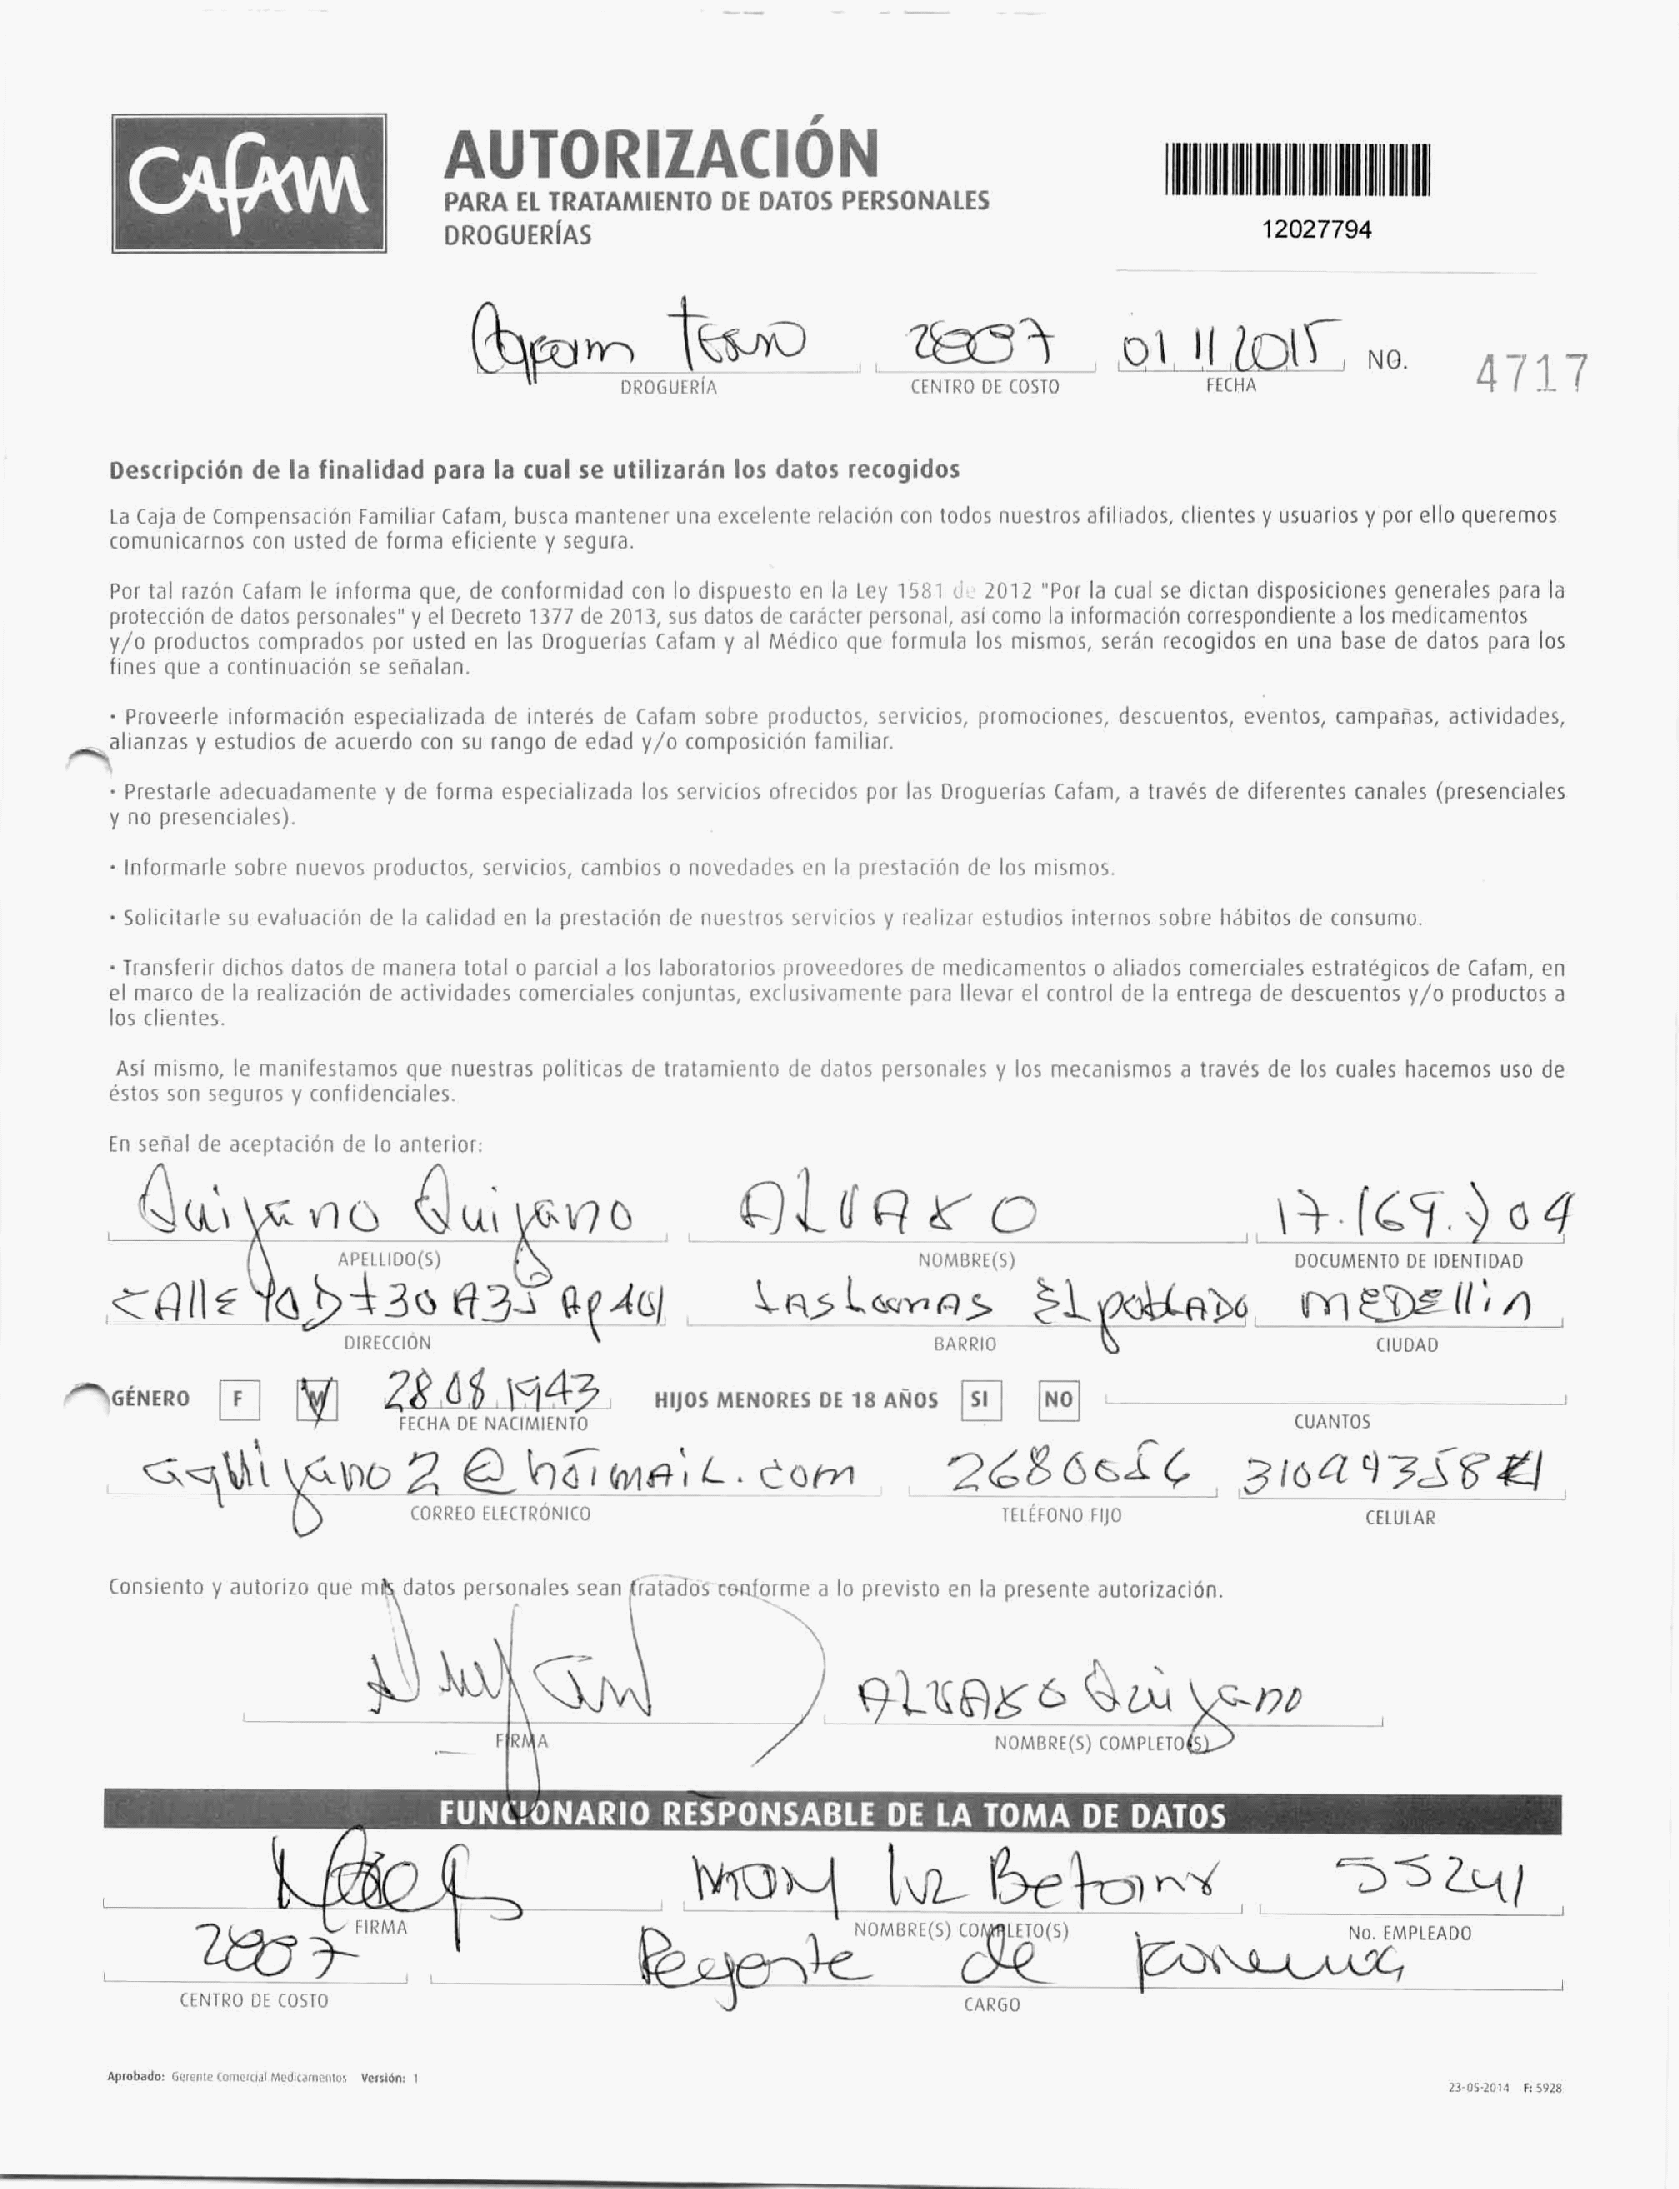 CAFAM
AUTORIZACIÓN
PARA EL TRATAMIENTO DE DATOS PERSONALES
DROGUERÍAS
12027794
Cafam 2007 01 11 2015 NO. 4717
DROGUERÍA CENTRO DE COSTO FECHA
Descripción de la finalidad para la cual se utilizarán los datos recogidos
La Caja de Compensación Familiar Cafam, busca mantener una excelente relación con todos nuestros afiliados, clientes y usuarios y por ello queremos
comunicarnos con usted de forma eficiente y segura.
Por tal razón Cafam le informa que, de conformidad con lo dispuesto en la Ley 1581 de 2012 "Por la cual se dictan disposiciones generales para la
protección de datos personales" y el Decreto 1377 de 2013, sus datos de carácter personal, así como la información correspondiente a los medicamentos
y/o productos comprados por usted en las Droguerías Cafam y al Médico que formula los mismos, serán recogidos en una base de datos para los
fines que a continuación se señalan.
• Proveerle información especializada de interés de Cafam sobre productos, servicios, promociones, descuentos, eventos, campañas, actividades,
alianzas y estudios de acuerdo con su rango de edad y/o composición familiar.
• Prestarle adecuadamente y de forma especializada los servicios ofrecidos por las Droguerías Cafam, a través de diferentes canales (presenciales
y no presenciales).
• Informarle sobre nuevos productos, servicios, cambios o novedades en la prestación de los mismos.
• Solicitarle su evaluación de la calidad en la prestación de nuestros servicios y realizar estudios internos sobre hábitos de consumo.
• Transferir dichos datos de manera total o parcial a los laboratorios proveedores de medicamentos o aliados comerciales estratégicos de Cafam, en
el marco de la realización de actividades comerciales conjuntas, exclusivamente para llevar el control de la entrega de descuentos y/o productos a
los clientes.
Así mismo, le manifestamos que nuestras políticas de tratamiento de datos personales y los mecanismos a través de los cuales hacemos uso de
éstos son seguros y confidenciales.
En señal de aceptación de lo anterior:
Quijano Quijano ALVARO 17.169.704
APELLIDO(S) NOMBRE(S) DOCUMENTO DE IDENTIDAD
CAllE Las Lomas El poblado MEDEllin
DIRECCIÓN BARRIO CIUDAD
GÉNERO F M 28 08 1943 HIJOS MENORES DE 18 AÑOS SI NO
FECHA DE NACIMIENTO CUANTOS
aquijano2@hotmail.com
CORREO ELECTRÓNICO TELÉFONO FIJO CELULAR
Consiento y autorizo que mis datos personales sean tratados conforme a lo previsto en la presente autorización.
ALVARO Quijano
FIRMA NOMBRE(S) COMPLETO(S)
FUNCIONARIO RESPONSABLE DE LA TOMA DE DATOS
55241
FIRMA NOMBRE(S) COMPLETO(S) No. EMPLEADO
2007 Regente de
CENTRO DE COSTO CARGO
Aprobado: Gerente Comercial Medicamentos Versión: 1
23-05-2014 F: 5928